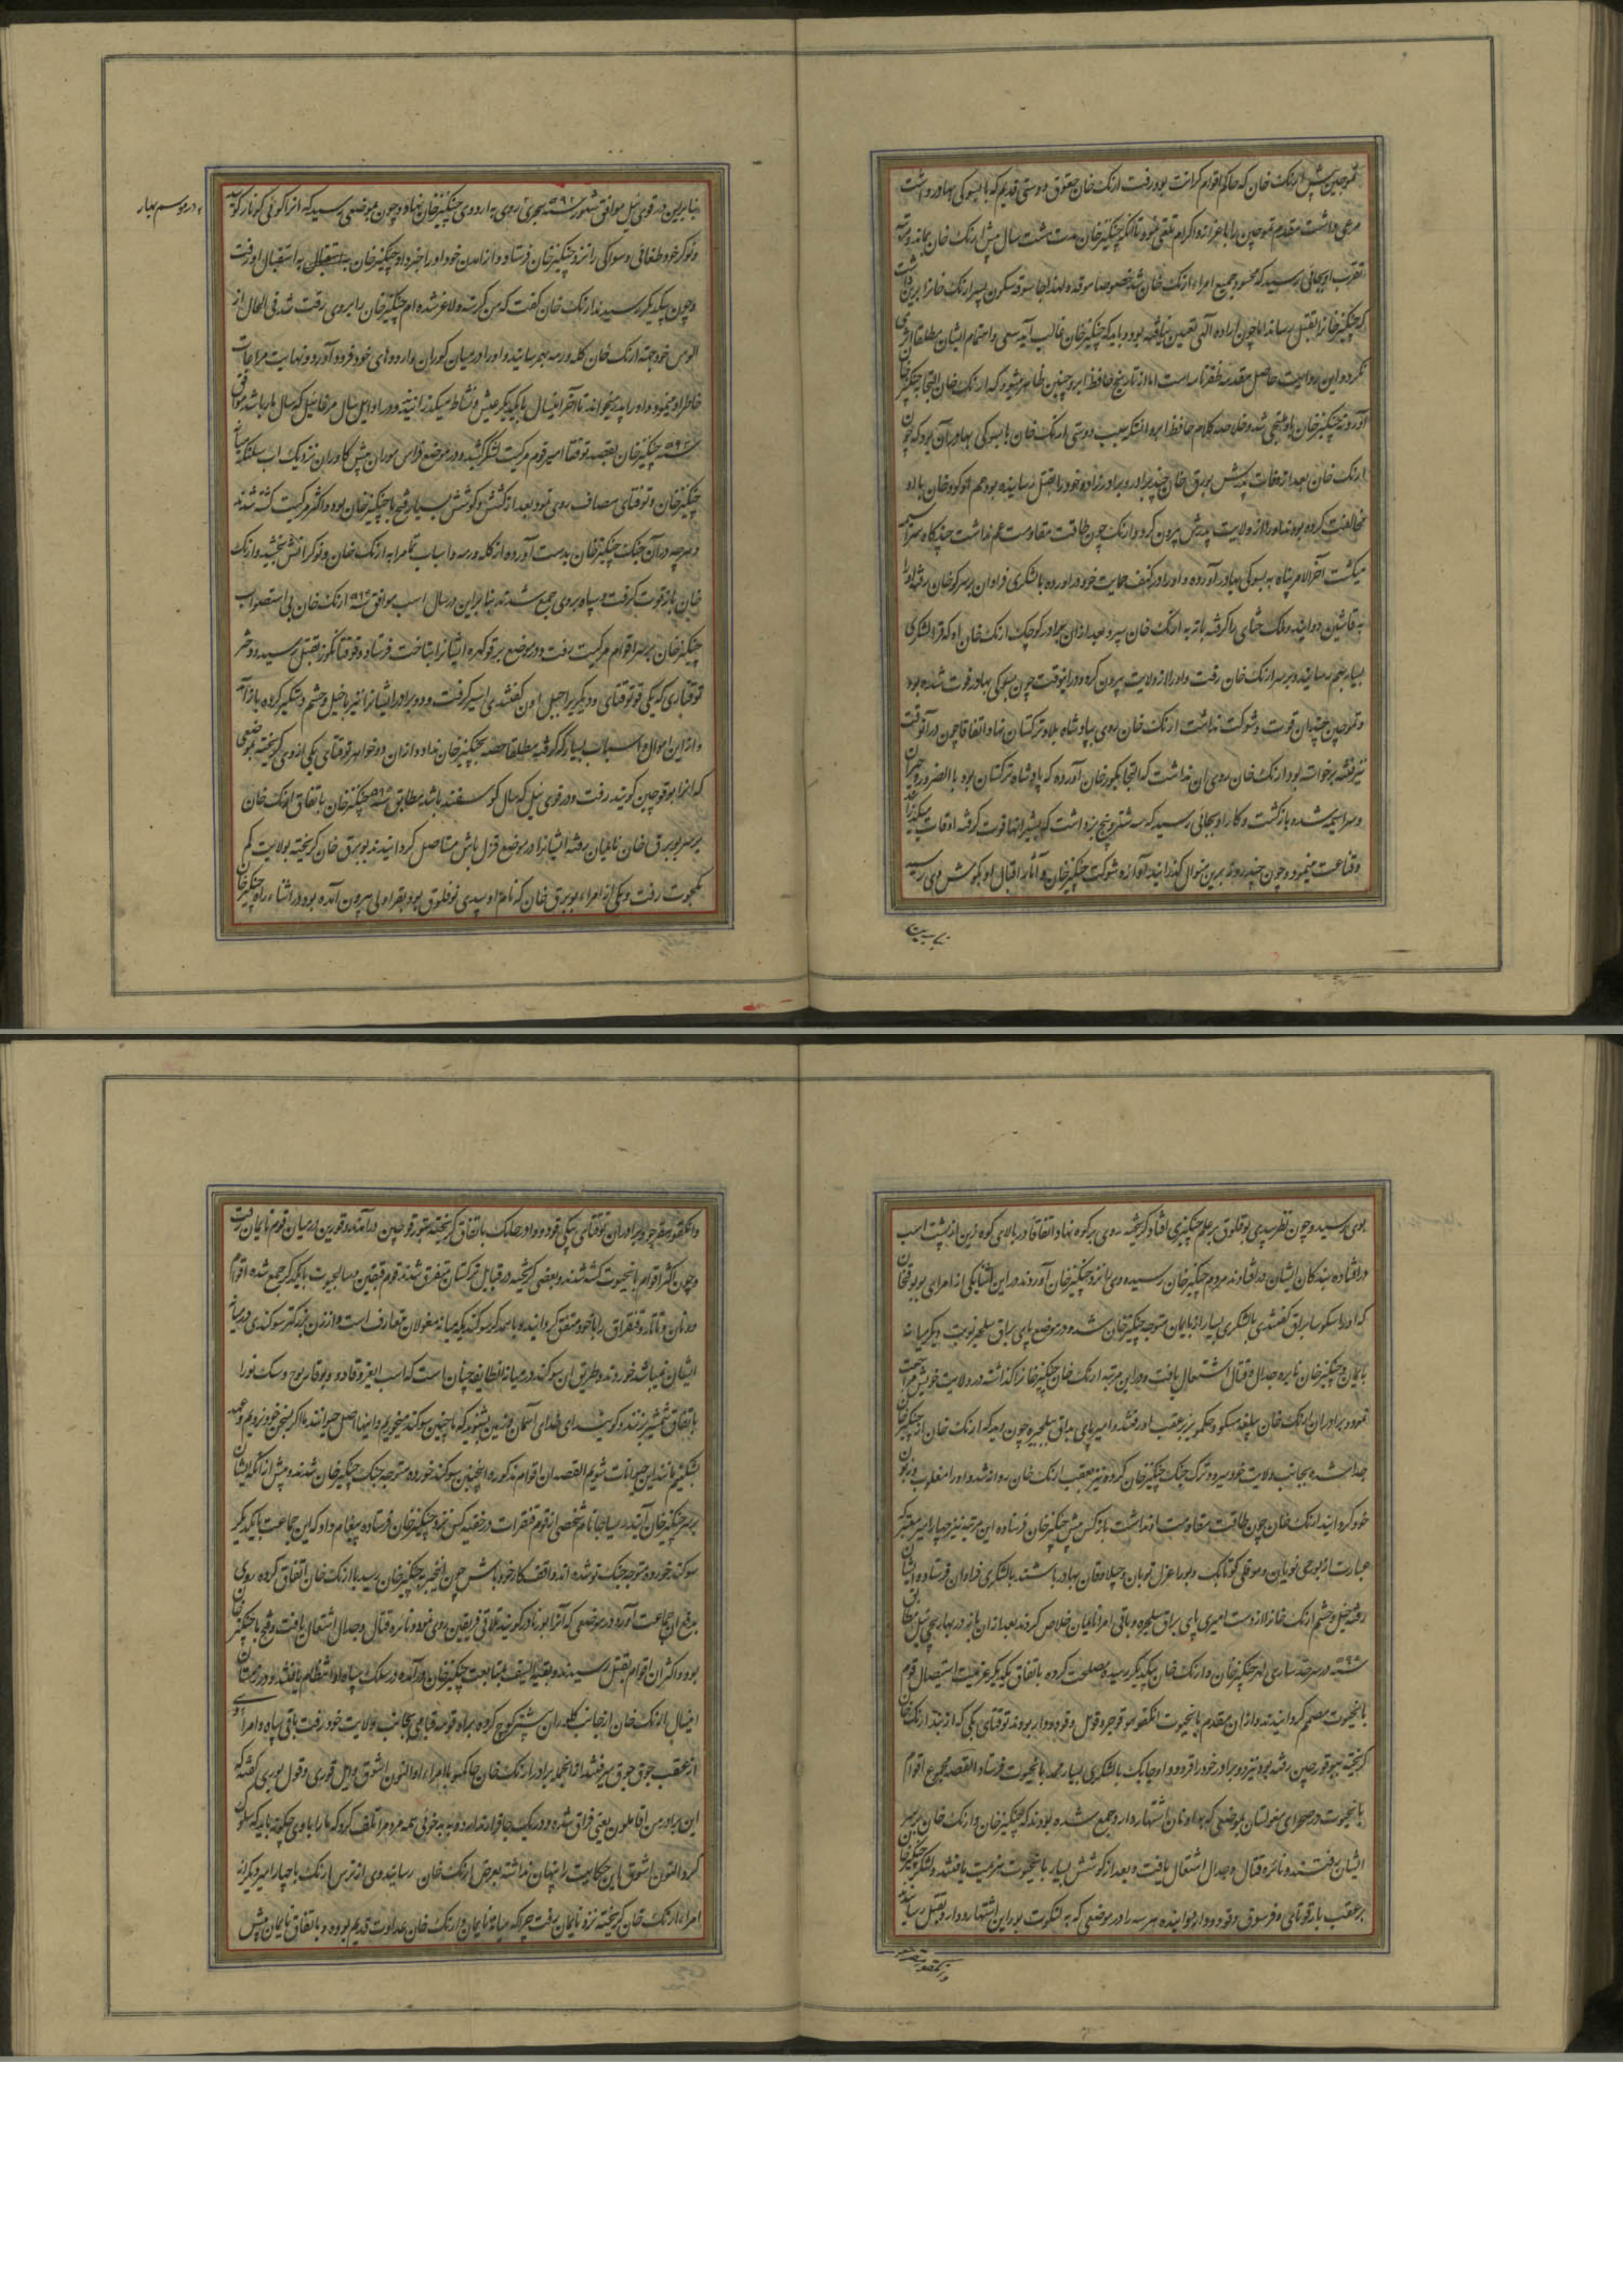 تموجین پیش ارنک خان که حاکم اقوام کرائت بود رفت ارنک خان حقوق دوستی قدیم که با یسوکی بهادر داشت
مرعی داشت مقدم تموجین را با عزاز و اکرام تلقی نمود تا آنکه چنکیز خان مدت هشت سال پیش ارنک خان بماند و مرتبه
تقرب او بجائی رسید که محسود جمیع امراء ارنک خان شد خصوصا موقد و لهذا جاموقه سنکون پسر ارنک خانرا برین داشت
که چنکیز خانرا بقتل رساند اما چون اراده آلهی تعیین یافته بود و باید که چنکیز خان غالب آید سعی و اهتمام ایشان مطلقا اثری
نکرد و این روایت حاصل مقدمه ظفرنامه است اما از تاریخ حافظ ابرو چنین ظاهر میشود که ارنک خان التجا به چنکیز خان
آورد نه چنکیز خان باو ملتجی شد و خلاصه کلام حافظ ابرو آنستکه سبب دوستی ارنک خان با یسوکی بهادر آن بود که چون
ارنک خان بعد از وفات پدرش بویرق خان چند برادر و برادر زاده خود را بقتل رسانیده بود عم او کور خان با او
مخالفت کرده بود و او را از ولایت پدرش بیرون کرد و ارنک چون طاقت مقاومت عم نداشت چند کاه سراسیمه
میکشت آخر الامر پناه به یسوکی بهادر آورده و او را در کنف حمایت خود در آورده با لشکری فراوان بر سر کور خان رفته او را
به قاشین دوانید و ملک ختای را کرفته باز به ارنک خان سپرد بعد از آن برادر کوچک ارنک خان او که قرا لشکری
بسیار بهم رسانید و بر سر ارنک خان رفت و او را از ولایت بیرون کرد و در آنوقت چون یسوکی بهادر فوت شده بود
و تموجین چندان قوت و شوکت نداشت ارنک خان روی بپادشاه بلاد ترکستان نهاد و اتفاقا چون در آنوقت
نیز فتنه برخواسته بود ارنک خان روی آن نداشت که التجا بکور خان آورده که پادشاه ترکستان بود بالضرور حیران
و سراسیمه شده بازکشت و کار او بجائی رسید که سه شتر و پنج بز داشت که بشیر انها قوت کرفته اوقات میکذرانید
و قناعت مینمود و چون چند روز برین منوال کذرانید آوازه شوکت چنکیز خان و آثار اقبال او بکوش وی رسید
بنا برین
بنا برین در قوی ئیل موافق شهور سنه ۵۹۲ هجری روی به اردوی چنکیز خان نهاد و چون بموضعی رسید که انرا کوئی کوناور کویند
؞ در موسم بهار
دو نوکر خود طغائی و سواکی را نزد چنکیز خان فرستاد و از امدن خود او را خبر داد چنکیز خان به استقبال او رفت
و چون بیکدیکر رسیدند ارنک خان کفت که من کرسنه و لاغر شده ام چنکیز خان را بر وی رقت شد فی الحال از
الوس خود جهته ارنک خان کله و رمه بهم رسانید و او را در میان کوران و اردوهای خود فرود آورد و نهایت مراعات
خاطر او مینمود و او را پدر میخواند تا آخر آنسال با یکدیکر عیش و نشاط میکذرانیدند و در اوایل سال موغا ئیل که سال مار باشد موافق
سنه ۵۹۳ چنکیز خان بقصد توقتا امیر قوم مرکیت لشکر کشید و در موضع قراس موران پیش کادران نزدیک اب سلنکه میانه
چنکیز خان و توقتای مصاف روی نمود بعد از کشش و کوشش بسیار فتح با چنکیز خان بود و اکثر مرکیت کشته شدند
و هر چه در آن جنک چنکیز خان بدست آورده از کله و رمه و اسباب تمام را به ارنک خان و نوکرانش بخشید و ارنک
خان باز قوت کرفت و سپاه بر وی جمع شدند بنا برین در سال اسب موافق سنه ۵۹۴ ارنک خان بی استصواب
چنکیز خان بر سر اقوام مرکیت رفت و در موضع برقو کهره ایشانرا بتاخت فرستاد و توقتا بکوز بقتل رسید و دختر
توقتا را که یکی قوتوقتای و دیکری را جیل اون کفتندی اسیر کرفت و دو برادر ایشانرا نیز با خیل و حشم دستکیر کرده باز آمد
و از این اموال و اسباب بسیار که کرفته مطلقا حصه بچنکیز خان نداد و ازان دو خواهر توقتای یکی از وی کریخته بموضعی
که انرا برقوجین کویند رفت و در قوی ئیل که سال کوسفند باشد مطابق سنه ۵۹۵ چنکیز خان باتفاق ارنک خان
بر سر بویرق خان نایمان رفته ایشانرا در موضع قزل باش مستاصل کردانیدند بویرق خان کریخته بولایت کم
کمجوت رفت و یکی از امراء بویرق خان که نام او سیدی توقلوق بود بقراولی بیرون آمده بود در اثناء راه چنکیز خان
بوی رسید و چون نظر سیدی توقلوق بر علم چنکیزی افتاد کریخته روی بر کوه نهاد و اتفاقا در بالای کوه زین از پشت اسب
در افتاده بندکان ایشان در افتادند مردم چنکیز خان رسیده وی را نزد چنکیز خان آوردند در این اثنا یکی از امرای بویرق خان
که او را کوکسا براق کفتندی با لشکری بسیار از نایمان متوجه چنکیز خان شد و در موضع پای براق سلجیره نوبت دیکر میانه
نایمان و چنکیز خان نایره جدال و قتال اشتعال یافت و درین مرتبه ارنک خان چنکیز خانرا کذاشته در ولایت خویش مراجعت
نمود و برادران ارنک خان بیلقه سنکو و جکمبو نیز بر عقب او رفتند و امیر پای براق سلجیره چون دید که ارنک خان از چنکیز خان
جدا شده بجانب ولایت خود میرود ترک جنک چنکیز خان کرده و نیز بعقب ارنک خان روانه شد و او را مغلوب و زبون
خود کردانید ارنک خان چون طاقت مقاومت او نداشت باز کس پیش چنکیز خان فرستاده این مرتبه نیز چهار امیر معتبر که
عبارت از بورجی نویان و موقلی کویانک و بوراغول نویان و جیلاوقان بهادر باشند با لشکری فراوان فرستاده ایشان
رفته خیل و حشم ارنک خانرا از دست امیری پای براق سلجیره و باقی امرا نایمان خلاص کردند بعد از ان باز در بهار پیچی ئیل مطابق
سنه ۵۹۶ در سرحد ساری کهر چنکیز خان و ارنک خان بیکدیکر رسیده مصلحت کرده باتفاق یکدیکر عزیمت استیصال قوم
تایجیوت مصمم کردانیدند و ازان مقدم تایجیوت انکقو هوقوجو و قول و قودودار بودند توقتای بیکی که از پیش ارنک خان
کریخته ببرقوجین رفته بود نیز دو برادر خود را قودو و اوجانک با لشکری بسیار بمدد تایجیوت فرستاد القصه مجموع اقوام
تایجیوت در صحرای مغولستان بموضعی که به اونان اشتهار دارد جمع شده بودند که چنکیز خان و ارنک خان بر سر
ایشان رفتند و نائره قتال و جدال اشتعال یافت و بعد از کوشش بسیار تایجیوت هزیمت یافتند و لشکر چنکیز خان
بر عقب تارقوتای و قرسوق و قودودار دوانیده هر سه را در موضعی که به لنکوت توراین اشتهار دارد بقتل رسانیدند
وانکقو هوقوجو
وانکقو هوقوجو و برادران توقتای بیکی قودو و اوجانک باتفاق کریخته ببرقوجین درآمدند و قورین درمیان قوم نایمان رفت
و چون اکثر اقوام تایجیوت کشته شدند و بعضی کریخته در قبایل ترکستان متفرق شدند قوم قیقین و سالجیوت با یکدیکر جمع شده اقوام
دوربان و تاتار و قنقرات را با خود متفق کردانیده و با همدکر سوکند که میانه مغولان متعارف است و ازان بزرکتر سوکندی درمیانه
ایشان نمیباشد خوردند و طریق ان سوکند در میانه انطایفه چنان است که اسب ایغر و کاو و بوقا و قوچ و سک نر را
باتفاق شمشیر بزنند و کویند ای خدای آسمان و زمین بشنوید که ما چنین سوکند میخوریم و اینها اصل حیوانند ما اکر بسخن خود نرویم و عهد
بشکنیم مانند این حیوانات شویم القصه ان اقوام مذکوره اینچنین سوکند خورده متوجه جنک چنکیز خان شدند و پیش از آنکه ایشان
بر سر چنکیز خان آیند نام شخصی از قوم قنقرات در خفیه کس نزد چنکیز خان فرستاده پیغام داد که این جماعت با یکدیکر
سوکند خورده متوجه جنک تو شده اند واقف کار خود باش چون این خبر به چنکیز خان رسید با ارنک خان اتفاق کرده روی
بدفع ان جماعت آورد و در موضعی که آنرا بویر ناور کویند تلاقی فریقین روی نمود و نائره قتال و جدال اشتعال یافت و فتح با چنکیز خان
بود و اکثر ان اقوام بقتل رسیدند و بقیة السیف بمتابعت چنکیز خان درآمده در سلک سپاه او انتظام یافتند و در زمستان
اینسال ارنک خان از جانب کلوران پیشتر کوچ کرده براه قوته قیا بجانب ولایت خود رفت باقی سپاه و امراء وی
از عقب جوق جوق میرفتند از انجمله برادر ارنک خان جاکمبو با امراء او التون اشوق و ایل قوری و قول بوری کفته که
این برادر من اقامه یعنی فراق شده و در یک جا قرار ندارد و به بد خوئی همه مردم را تلف کرد که ما را با وی چکونه باید که سلوک
کرد التون اشوق این حکایت را پنهان نداشته بعرض ارنک خان رسانید وی از ترس ارنک با چهار امیر دیکر از
امراء ارنک خان کریخته نزد نایمان رفت چرا که میانه نایمان و ارنک خان عداوت قدیم بود و باتفاق نایمان پیش